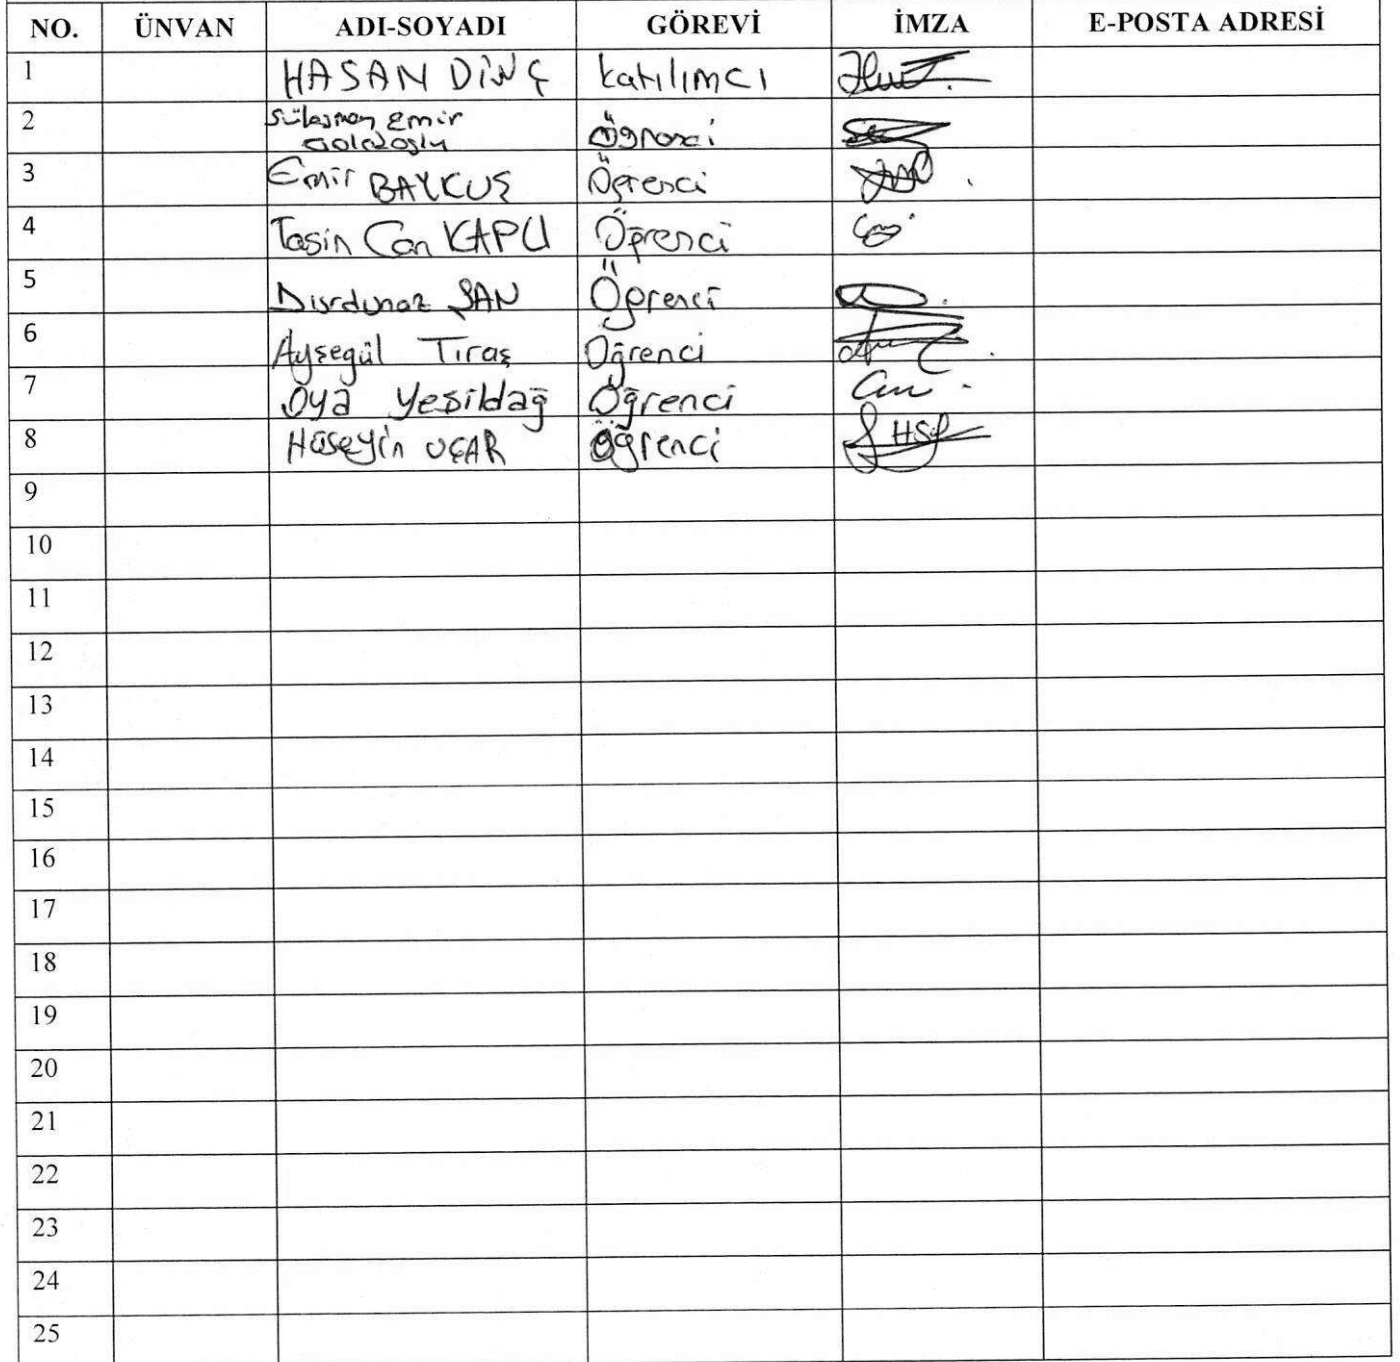 NO. ÜNVAN ADI-SOYADI GÖREVİ İMZA E-POSTA ADRESİ
1 HASAN DİNÇ katılımcı
2 Süleyman Emir Öğrenci
3 Emir BAYKUŞ Öğrenci
4 Tasin Can KAPU Öğrenci
5 Durdunaz ŞAN Öğrenci
6 Ayşegül Tıraş Öğrenci
7 Oya Yeşildağ Öğrenci
8 Hüseyin UÇAR Öğrenci
9
10
11
12
13
14
15
16
17
18
19
20
21
22
23
24
25